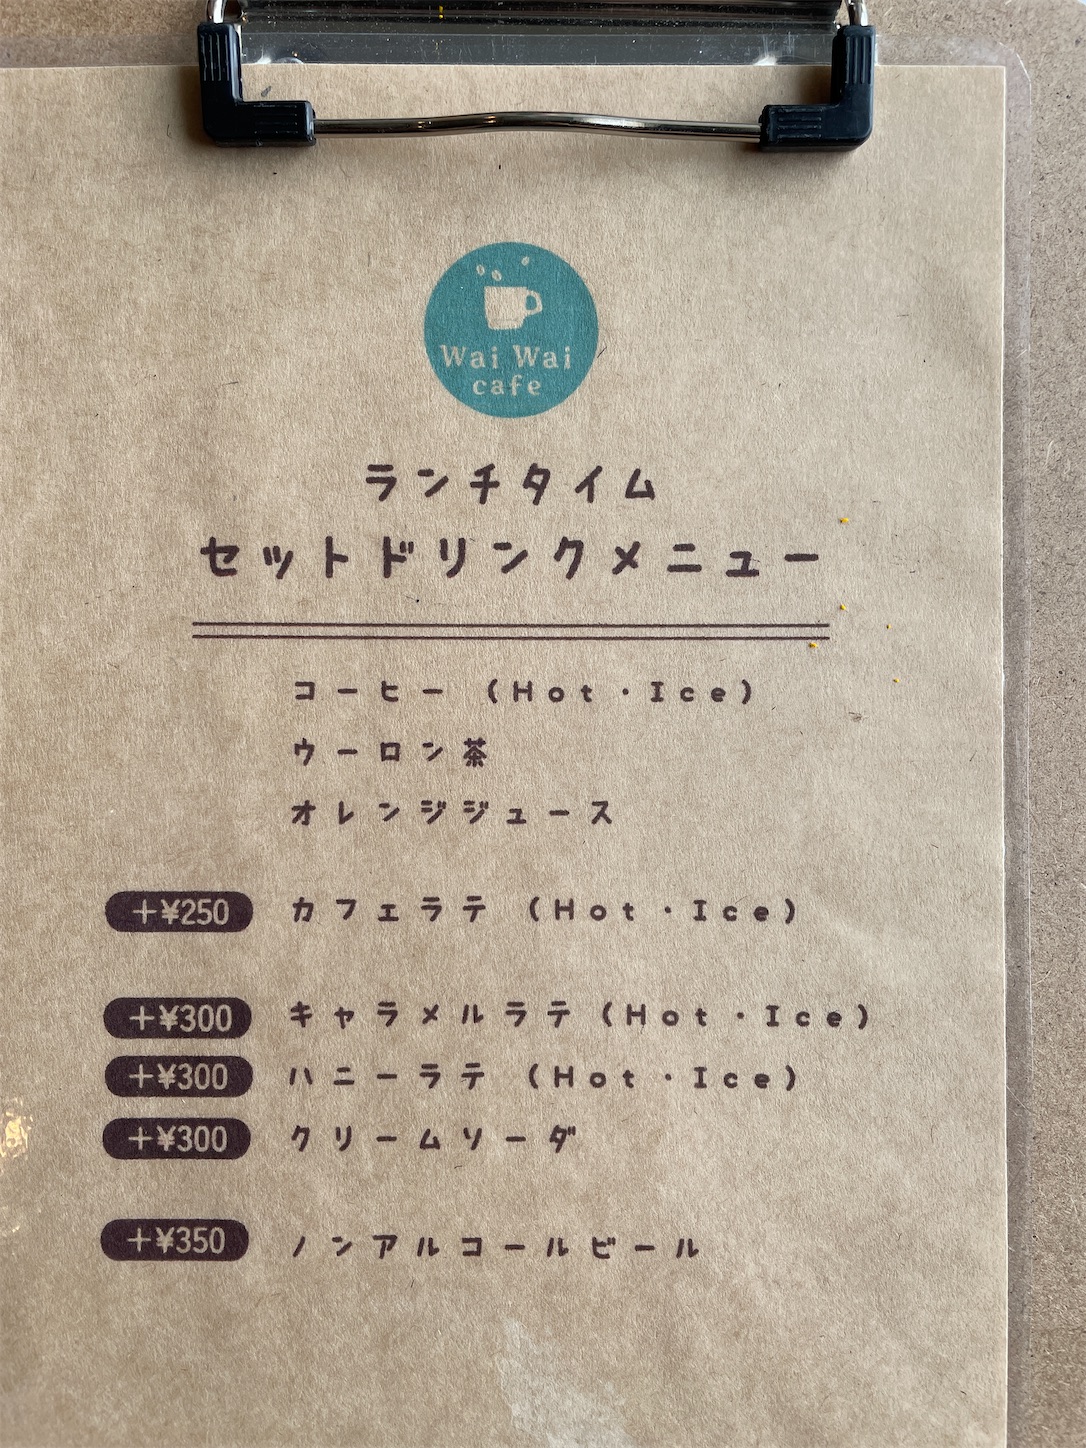 Wai Wai
cafe
ランチタイム
セットドリンクメニュー
コーヒー（Hot・Ice）
ウーロン茶
オレンジジュース
＋¥250 カフェラテ（Hot・Ice）
＋¥300 キャラメルラテ（Hot・Ice）
＋¥300 ハニーラテ（Hot・Ice）
＋¥300 クリームソーダ
＋¥350 ノンアルコールビール